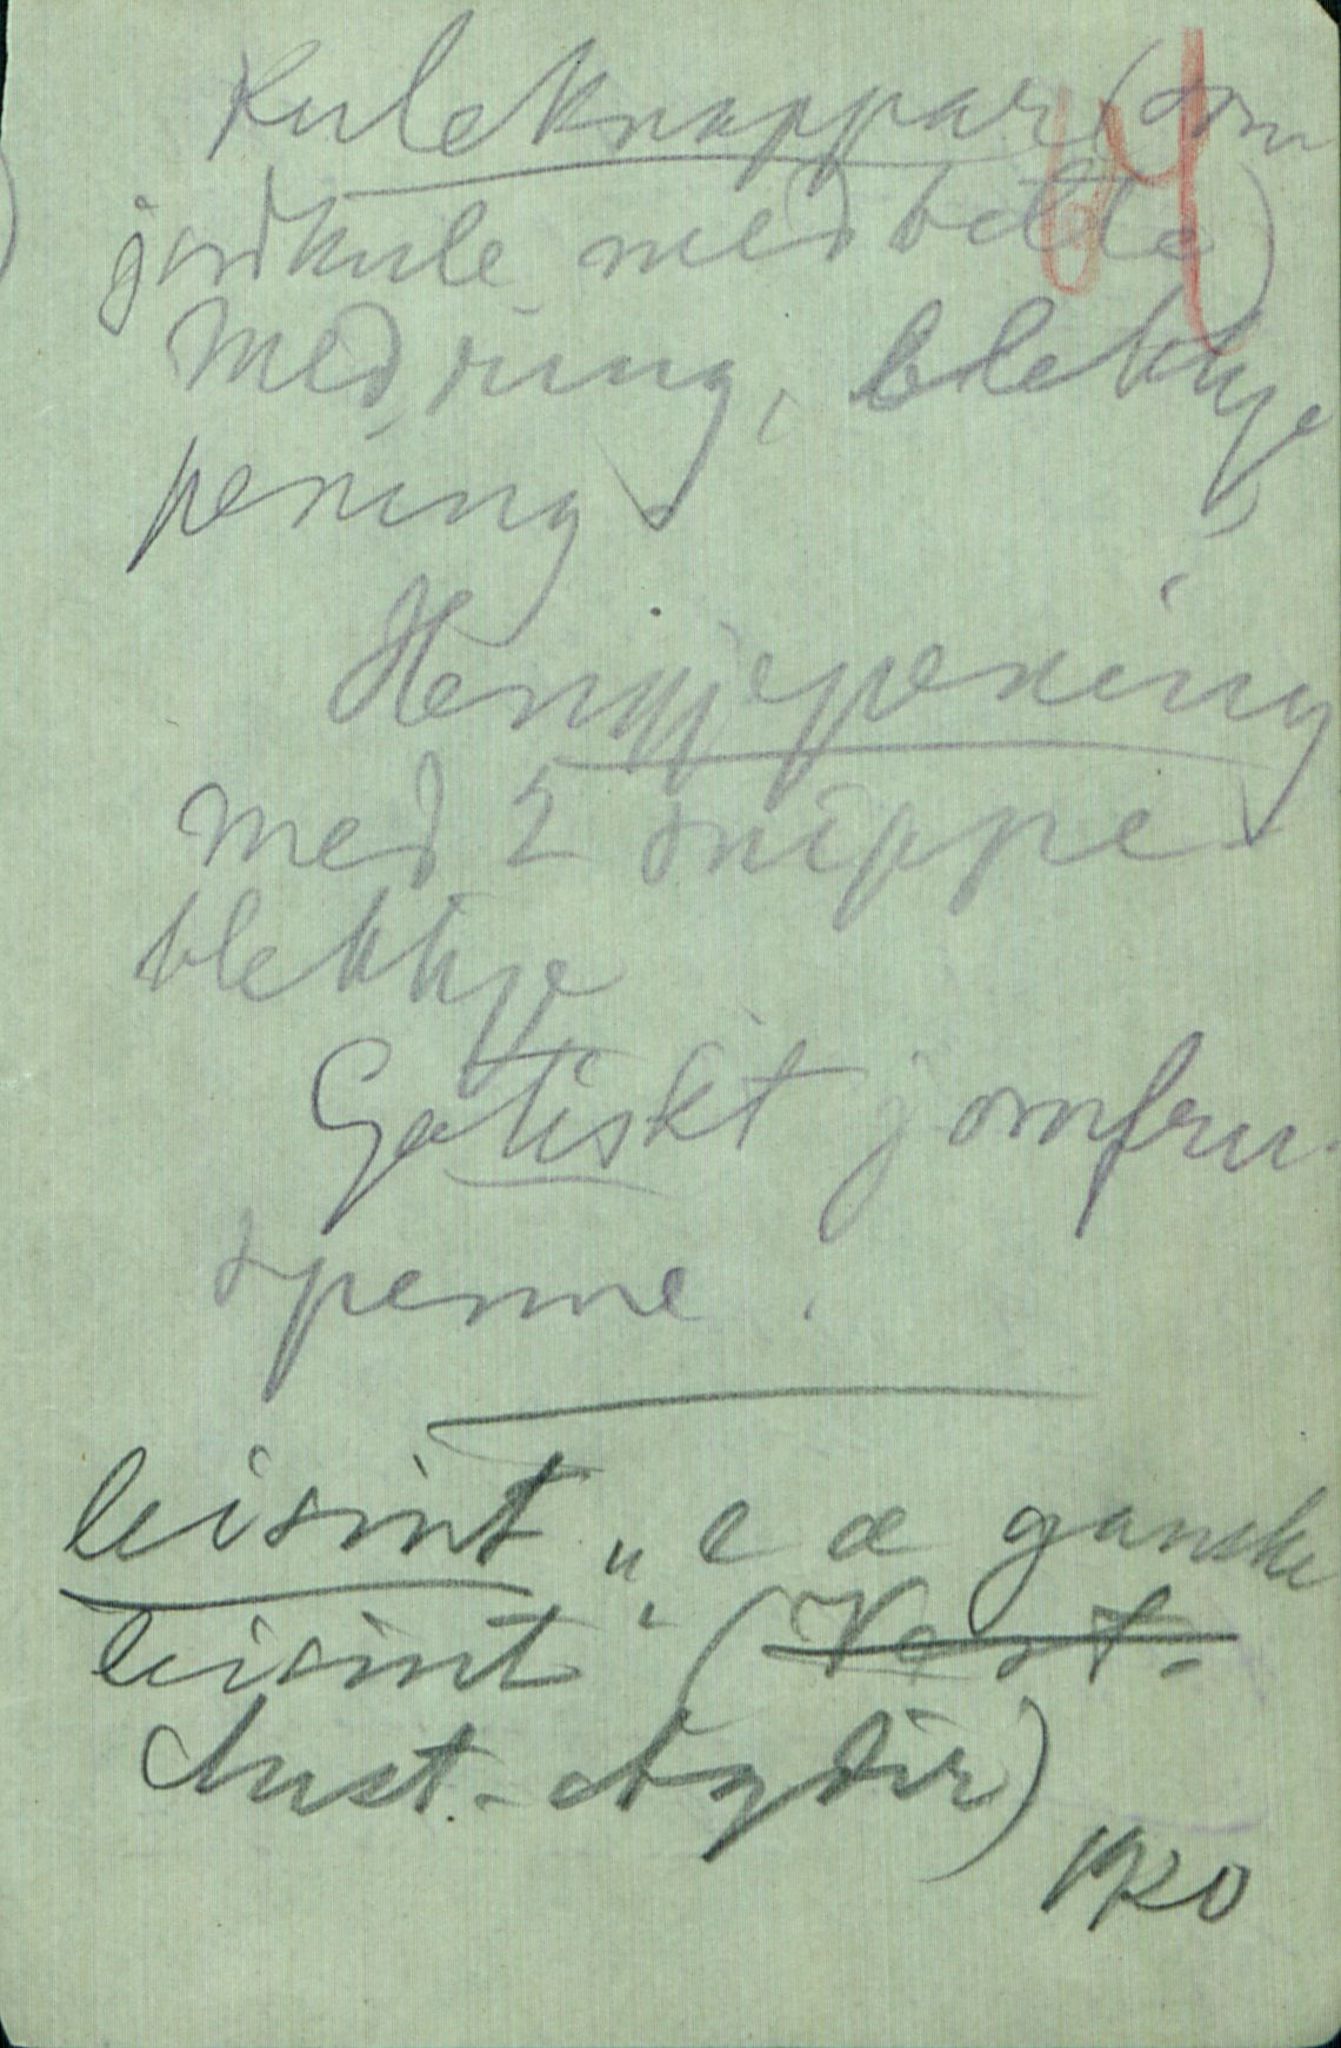 Kuleknappar (som
64
jordkule med belte)
med ring, blekkje
pening
Hengjepening
med 2 snippe
blekkje
Gotiskt jomfru-
spenne.
leisint "e æ ganske
leisint" (Vest-
Aust-Agder)
1920